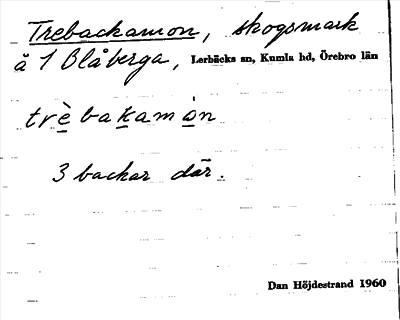 Trebackamon, skogsmark
å 1 Blåberga, Lerbäcks sn, Kumla hd, Örebro län
trèbakamòn
3 backar där.
Dan Höjdestrand 1960